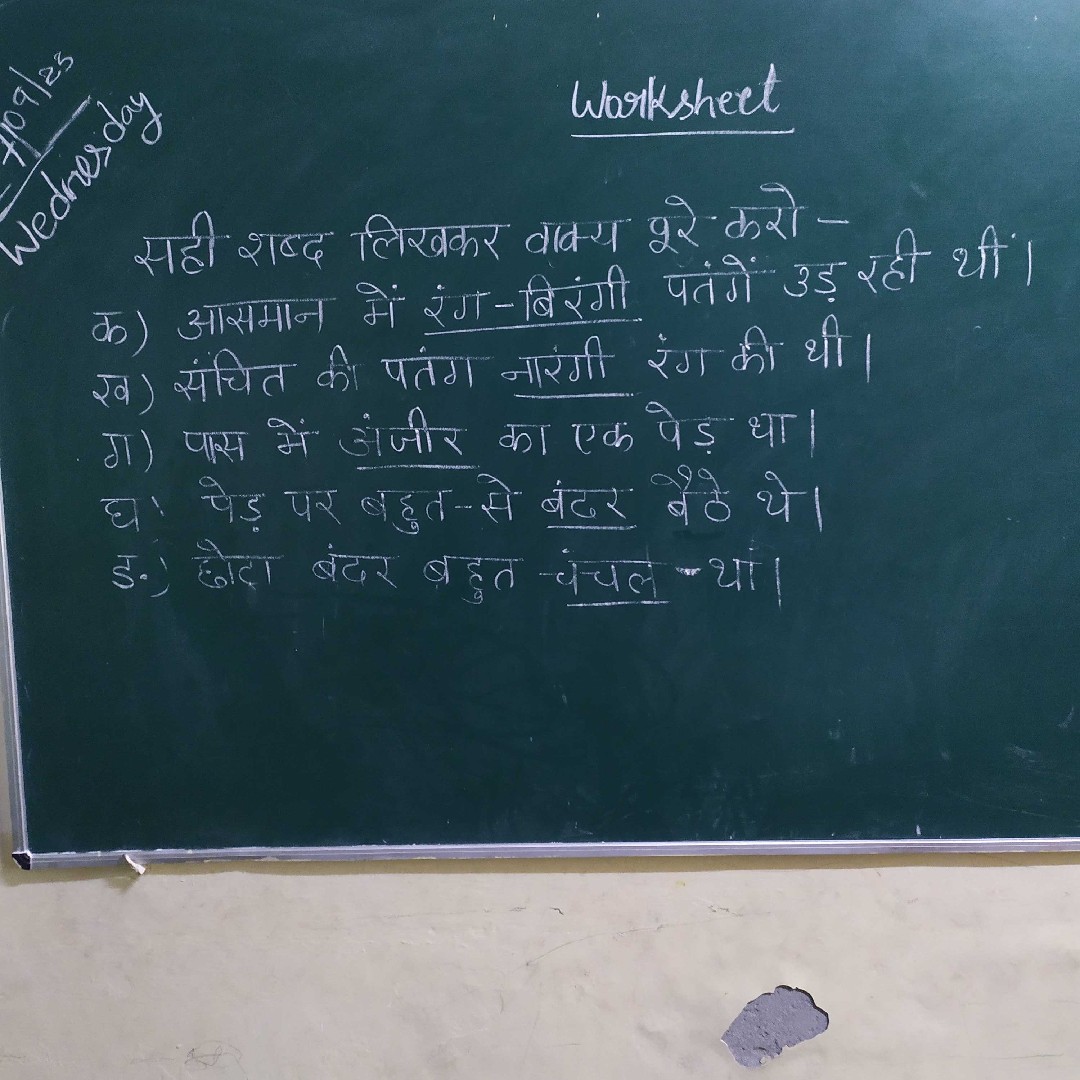 Wednesday
Worksheet
सही शब्द लिखकर वाक्य पूरे करो –
क) आसमान में रंग-बिरंगी पतंगें उड़ रही थीं।
ख) संचित की पतंग नारंगी रंग की थी।
ग) पास में अंजीर का एक पेड़ था।
घ) पेड़ पर बहुत-से बंदर बैठे थे।
ङ) छोटा बंदर बहुत चंचल था।